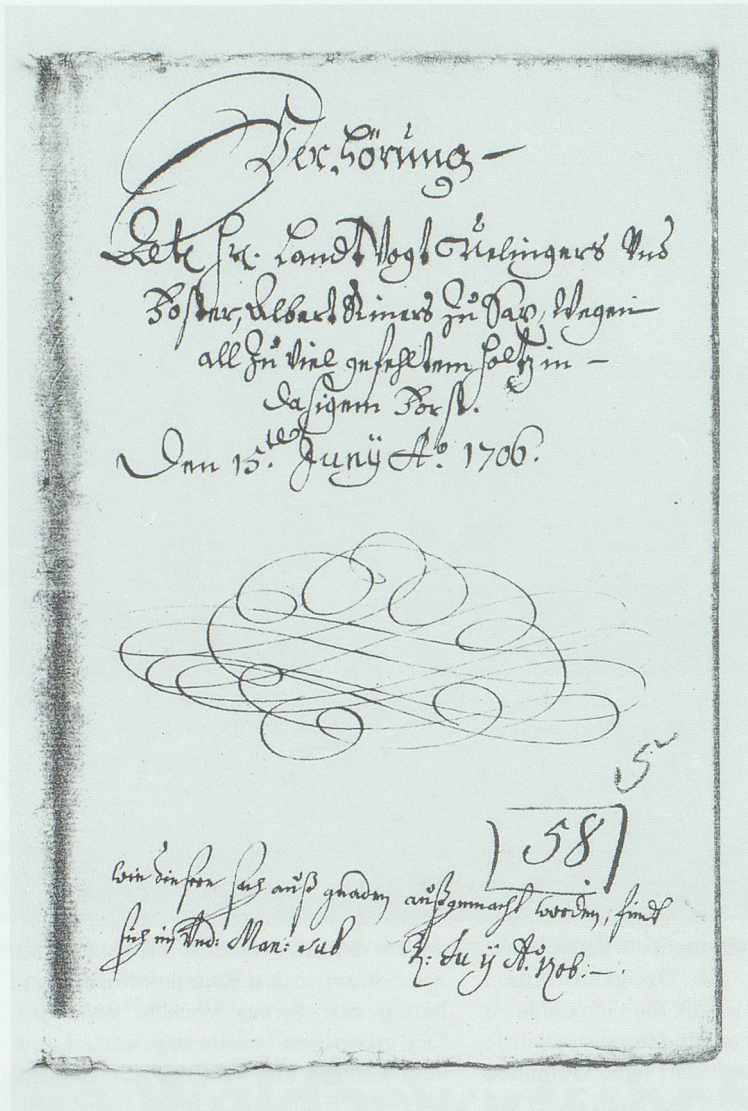 Verhörung –
Alt Hr. Landt Vogt Ulingers Und
Forster, Albert Riners zů Sax, Wegen
all zů viel gefehltem holtz in –
dasigem Forst.
Den 15.ten Junÿ Aº. 1706.
5
58
wie diesere sach auß gnaden außgemacht worden, findt
sich in Und: Man: sub Aº. 1706. –.